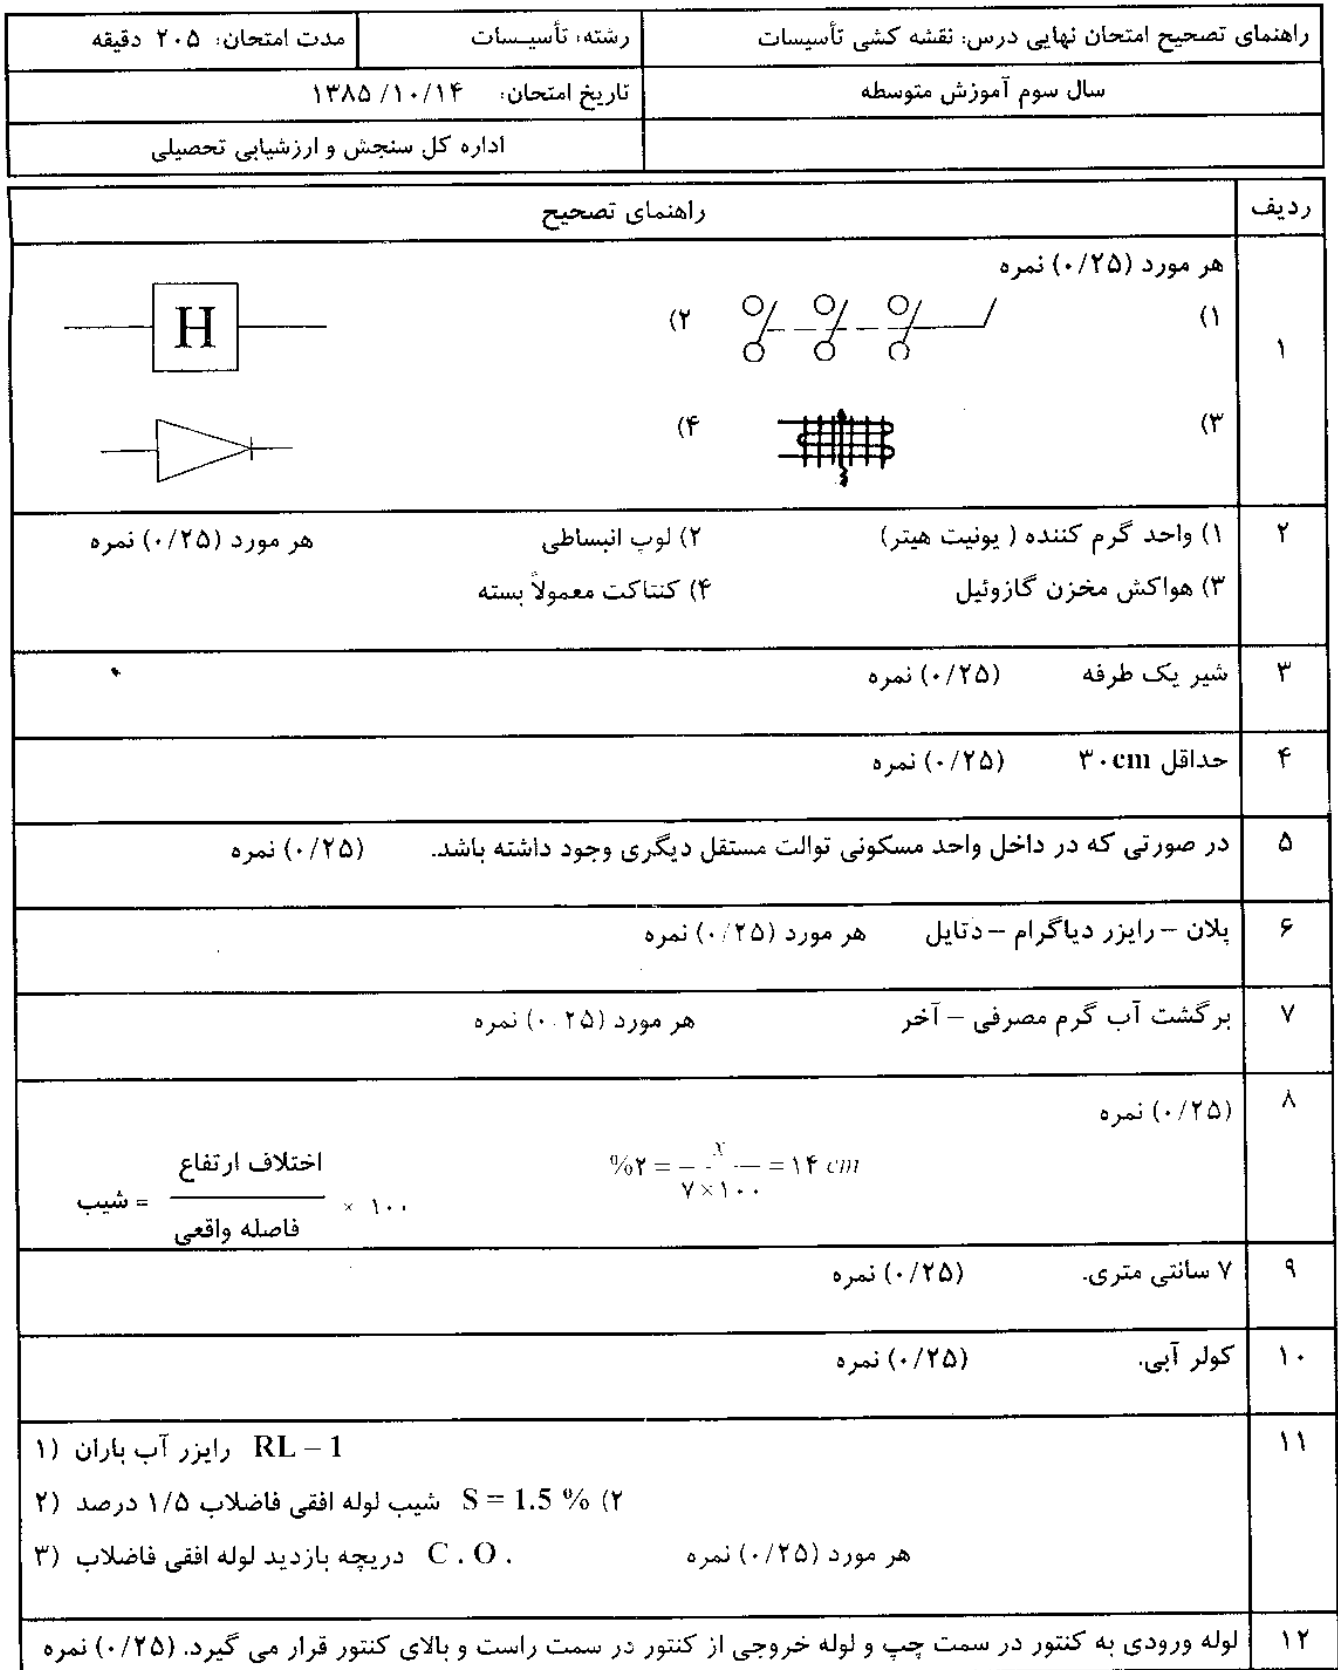 راهنمای تصحیح امتحان نهایی درس: نقشه کشی تأسیسات
رشته: تأسیسات
مدت امتحان: ۲۰۵ دقیقه
سال سوم آموزش متوسطه
تاریخ امتحان: ۱۳۸۵/۱۰/۱۴
اداره کل سنجش و ارزشیابی تحصیلی
ردیف
راهنمای تصحیح
۱
هر مورد (۰/۲۵) نمره
۱)
۲)
H
۳)
۴)
۲
۱) واحد گرم کننده ( یونیت هیتر) ۲) لوپ انبساطی هر مورد (۰/۲۵) نمره
۳) هواکش مخزن گازوئیل ۴) کنتاکت معمولاً بسته
۳
شیر یک طرفه (۰/۲۵) نمره
۴
حداقل ۳۰cm (۰/۲۵) نمره
۵
در صورتی که در داخل واحد مسکونی توالت مستقل دیگری وجود داشته باشد. (۰/۲۵) نمره
۶
پلان – رایزر دیاگرام – دتایل هر مورد (۰/۲۵) نمره
۷
برگشت آب گرم مصرفی – آخر هر مورد (۰/۲۵) نمره
۸
(۰/۲۵) نمره
%۲ = x / ۷×۱۰۰ = ۱۴ cm
شیب = اختلاف ارتفاع / فاصله واقعی × ۱۰۰
۹
۷ سانتی متری. (۰/۲۵) نمره
۱۰
کولر آبی. (۰/۲۵) نمره
۱۱
RL – 1 رایزر آب باران (۱
۲) S = 1.5 % شیب لوله افقی فاضلاب ۱/۵ درصد (۲
C . O . دریچه بازدید لوله افقی فاضلاب (۳ هر مورد (۰/۲۵) نمره
۱۲
لوله ورودی به کنتور در سمت چپ و لوله خروجی از کنتور در سمت راست و بالای کنتور قرار می گیرد. (۰/۲۵) نمره